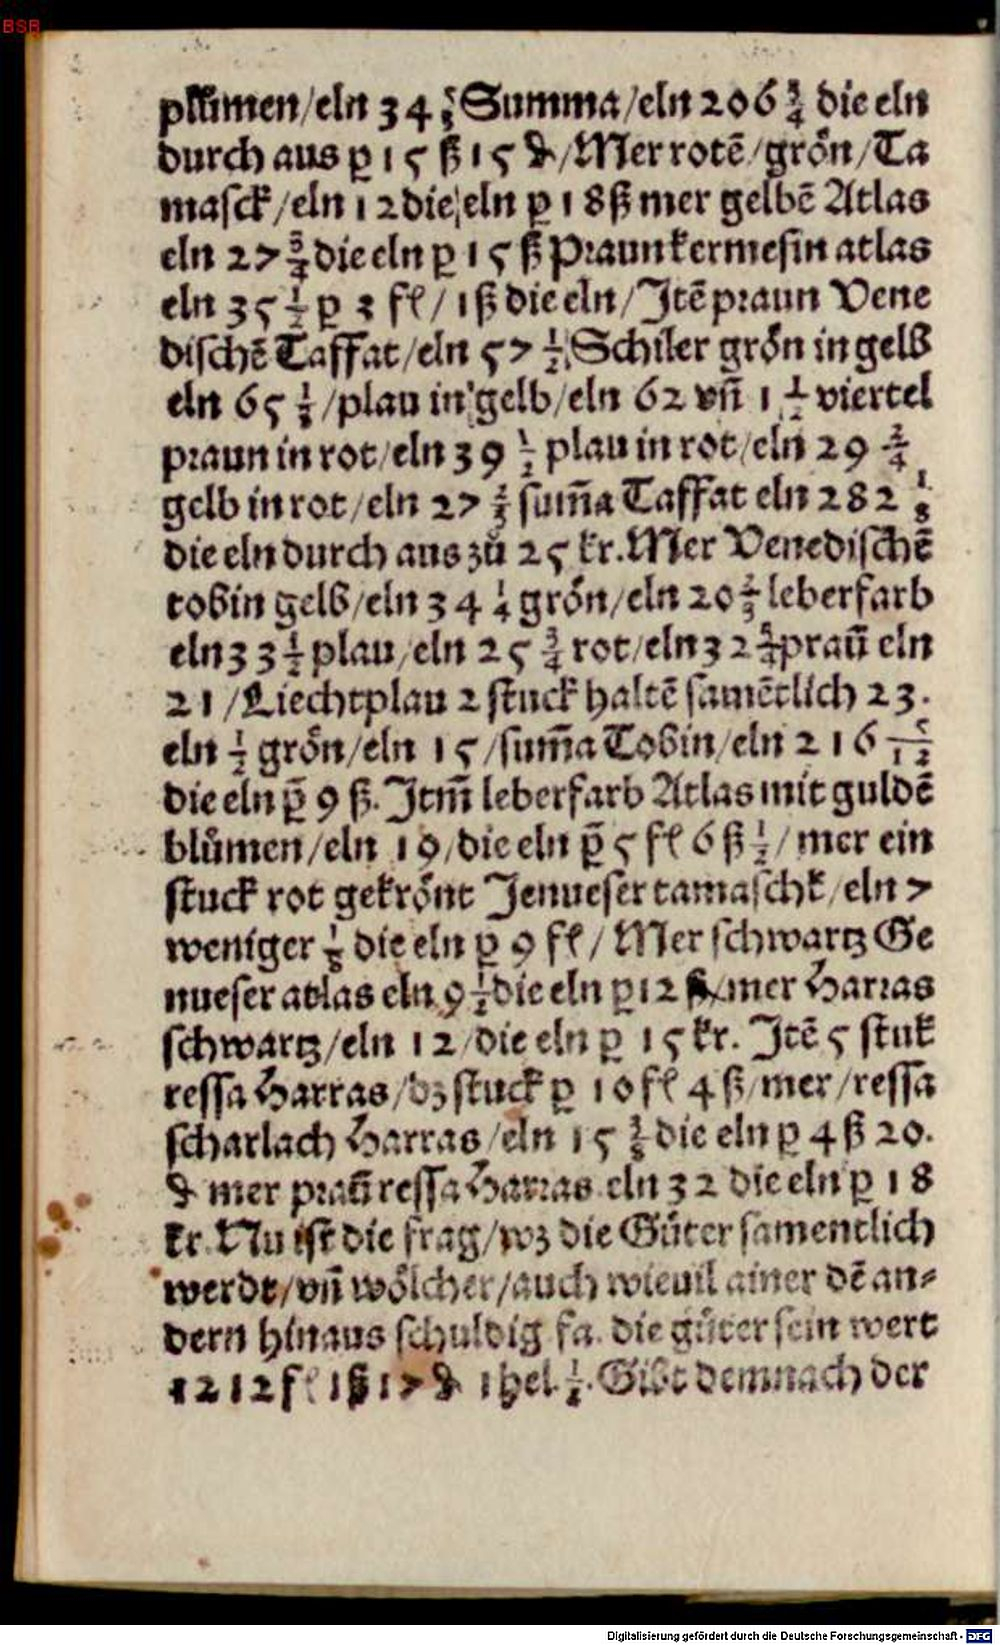 BSB
plůmen/eln 34 ⅝ Summa/eln 206 ¾ die eln
durch aus ꝑ 15 ß 15 ₰/Mer rotē/grön/Ta
masck/eln 12 die/eln ꝑ 18 ß mer gelbē Atlas
eln 27 ¾ die eln ꝑ 15 ß Praun kermesin atlas
eln 35 ½ ꝑ 3 fl/ 1 ß die eln/Jtē praun Vene
dischē Taffat/eln 57 ½ Schiler grön in gelb
eln 65 ½/plau in gelb/eln 62 vñ 1 ½ viertel
praun in rot/eln 39 ½ plau in rot/eln 29 ¾
gelb in rot/eln 27 ⅔ sum̃a Taffat eln 282 ⅛
die eln durch aus zů 25 kr. Mer Venedischē
tobin gelb/eln 34 ¼ grön/eln 20 ⅔ leberfarb
eln 33 ½ plau/eln 25 ¾ rot/eln 32 ¾ praũ eln
21/Liechtplau 2 stuck haltē samētlich 23.
eln ½ grön/eln 15/sum̃a Tobin/eln 216 5/12
die eln ꝑ̃ 9 ß. Jtm̃ leberfarb Atlas mit guldē
blůmen/eln 19/die eln ꝑ̃ 5 fl 6 ß ½/mer ein
stuck rot gekrönt Jenueser tamaschk/eln 7
weniger ⅛ die eln ꝑ 9 fl/Mer schwartz Ge
nueser atlas eln 9 ½ die eln ꝑ 12 ß/mer Harras
schwartz/eln 12/die eln ꝑ 15 kr. Jtē 5 stuk
ressa Harras/dz stuck ꝑ 10 fl 4 ß/mer/ressa
scharlach Harras/eln 15 ⅔ die eln ꝑ 4 ß 20.
₰ mer praũ ressa Harras eln 32 die eln ꝑ 18
kr. Nu ist die frag/wz die Güter samentlich
werdt/vñ wölcher/auch wieuil ainer dē an⸗
dern hinaus schuldig fa. die güter sein wert
1212 fl 1 ß 17 ₰ 1 hel. ½. Gibt demnach der
Digitalisierung gefördert durch die Deutsche Forschungsgemeinschaft - DFG